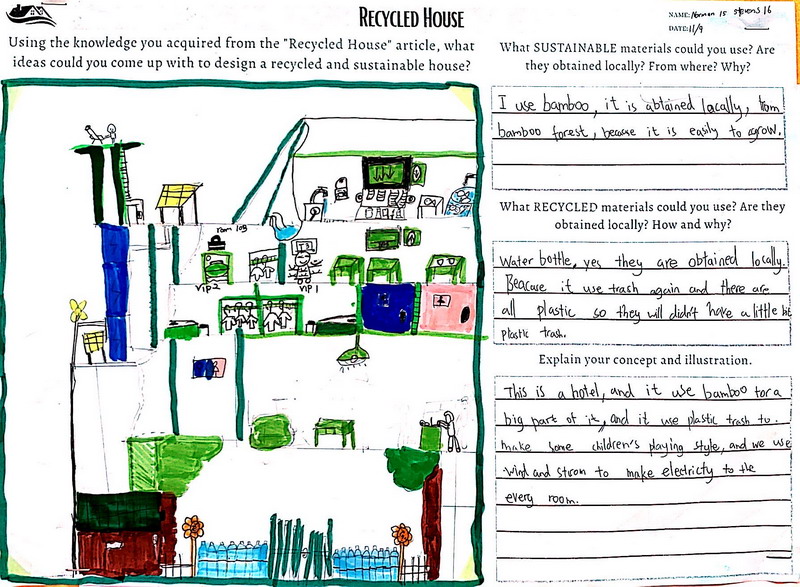 RECYCLED HOUSE
NAME: Norman 15 stevens 16
DATE: 11/9
Using the knowledge you acquired from the "Recycled House" article, what
ideas could you come up with to design a recycled and sustainable house?
room log
VIP2
VIP 1
What SUSTAINABLE materials could you use? Are
they obtained locally? From where? Why?
I use bamboo, it is abtained locally, from
bamboo forest, because it is easily to agrow.
What RECYCLED materials could you use? Are they
obtained locally? How and why?
Water bottle, yes they are obtained locally.
Beacuse it use trash again and there are
all plastic so they will didn't have a little bit
plastic trash.
Explain your concept and illustration.
This is a hotel, and it use bamboo for a
big part of it, and it use plastic trash to
make some children's playing style, and we use
wind and strom to make electricty to the
every room.